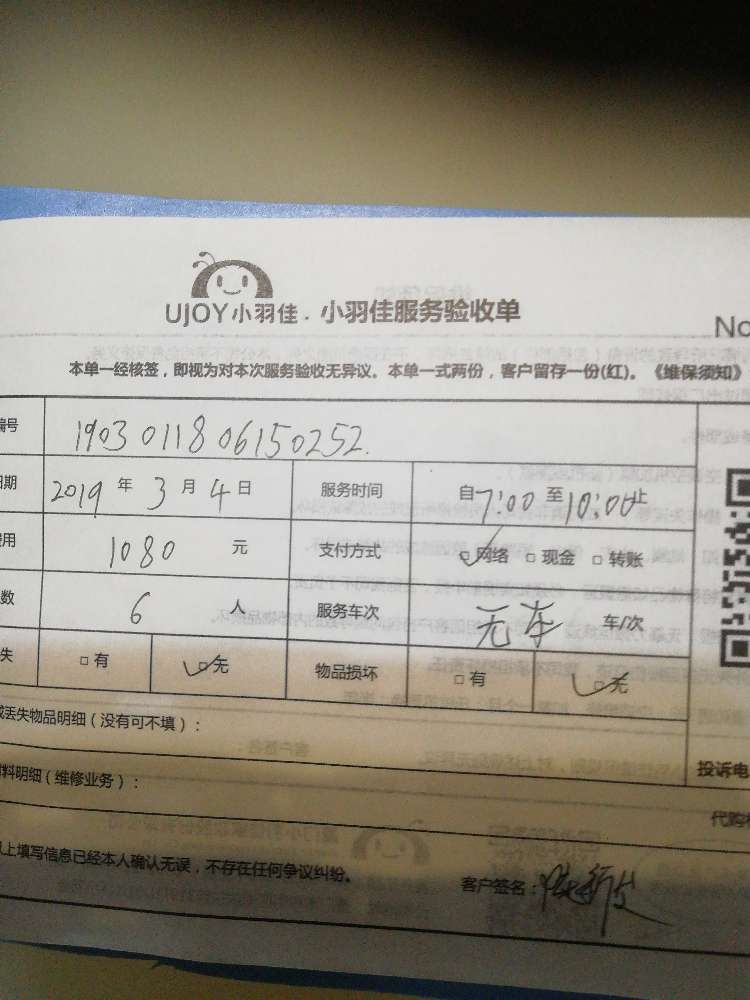 UJOY小羽佳．小羽佳服务验收单
No
本单一经核签，即视为对本次服务验收无异议。本单一式两份，客户留存一份(红)。《维保须知》
编号 1903011806150252
日期 2019 年 3 月 4 日 服务时间 自7:00 至10:00止
费用 1080 元 支付方式 ☑网络 □现金 □转账
数 6 人 服务车次 无车 车/次
失 □有 ☑无 物品损坏 □有 ☑无
或丢失物品明细（没有可不填）：
投诉电
材料明细（维修业务）：
代购
以上填写信息已经本人确认无误，不存在任何争议纠纷。
客户签名：